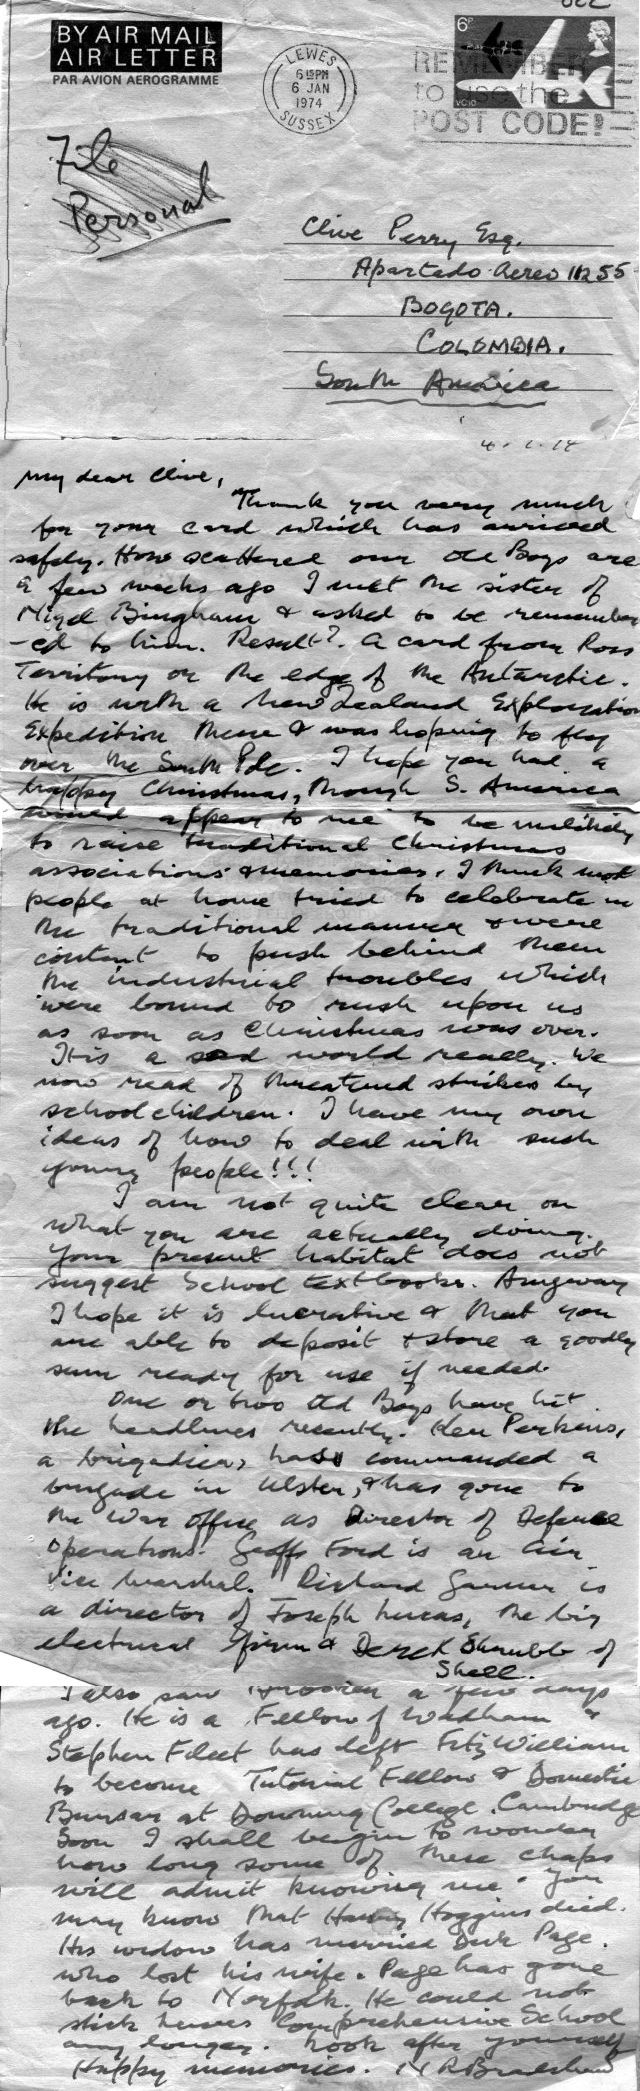 BY AIR MAIL
AIR LETTER
PAR AVION AEROGRAMME
LEWES
6 15PM
6 JAN
1974
SUSSEX
6P
VC10
REMEMBER
to use the
POST CODE!
File
Personal
Clive Perry Esq.
Apartado Aereo 11255
BOGOTA.
COLOMBIA.
South America
My dear Clive,
Thank you very much
for your card which has arrived
safely. How scattered our Old Boys are
a few weeks ago I met the sister of
Nigel Bingham & asked to be remember
-ed to him. Result? A card from Ross
Territory on the edge of the Antarctic.
He is with a New Zealand Exploration
Expedition there & was hoping to fly
over the South Pole. I hope you had a
happy Christmas, though S. America
would appear to me to be unlikely
to raise traditional Christmas
associations & memories. I think most
people at home tried to celebrate in
the traditional manner & were
content to push behind them
the industrial troubles which
were bound to rush upon us
as soon as Christmas was over.
It is a sad world really. We
now read of threatened strikes by
school children. I have my own
ideas of how to deal with such
young people!!!
I am not quite clear on
what you are actually doing.
Your present habitat does not
suggest School textbooks. Anyway
I hope it is lucrative & that you
are able to deposit & store a goodly
sum ready for use if needed.
One or two Old Boys have hit
the headlines recently. Ken Perkins,
a brigadier, has commanded a
brigade in Ulster, & has gone to
the War Office as Director of Defence
Operations. Geoff Ford is an Air
Vice Marshal. Richard Garner is
a director of Joseph Lucas, the big
electrical firm & Derek Shrubb of
Shell.
I also saw a few days
ago. He is a Fellow of Wadham &
Stephen Fleet has left FitzWilliam
to become Tutorial Fellow & Domestic
Bursar at Downing College. Cambridge
Soon I shall begin to wonder
how long some of these chaps
will admit knowing me. You
may know that Hoggins died.
His widow has married Dick Page.
who lost his wife. Page has gone
back to Norfolk. He could not
stick Lewes Comprehensive School
any longer. Look after yourself
Happy memories. N R Bradshaw